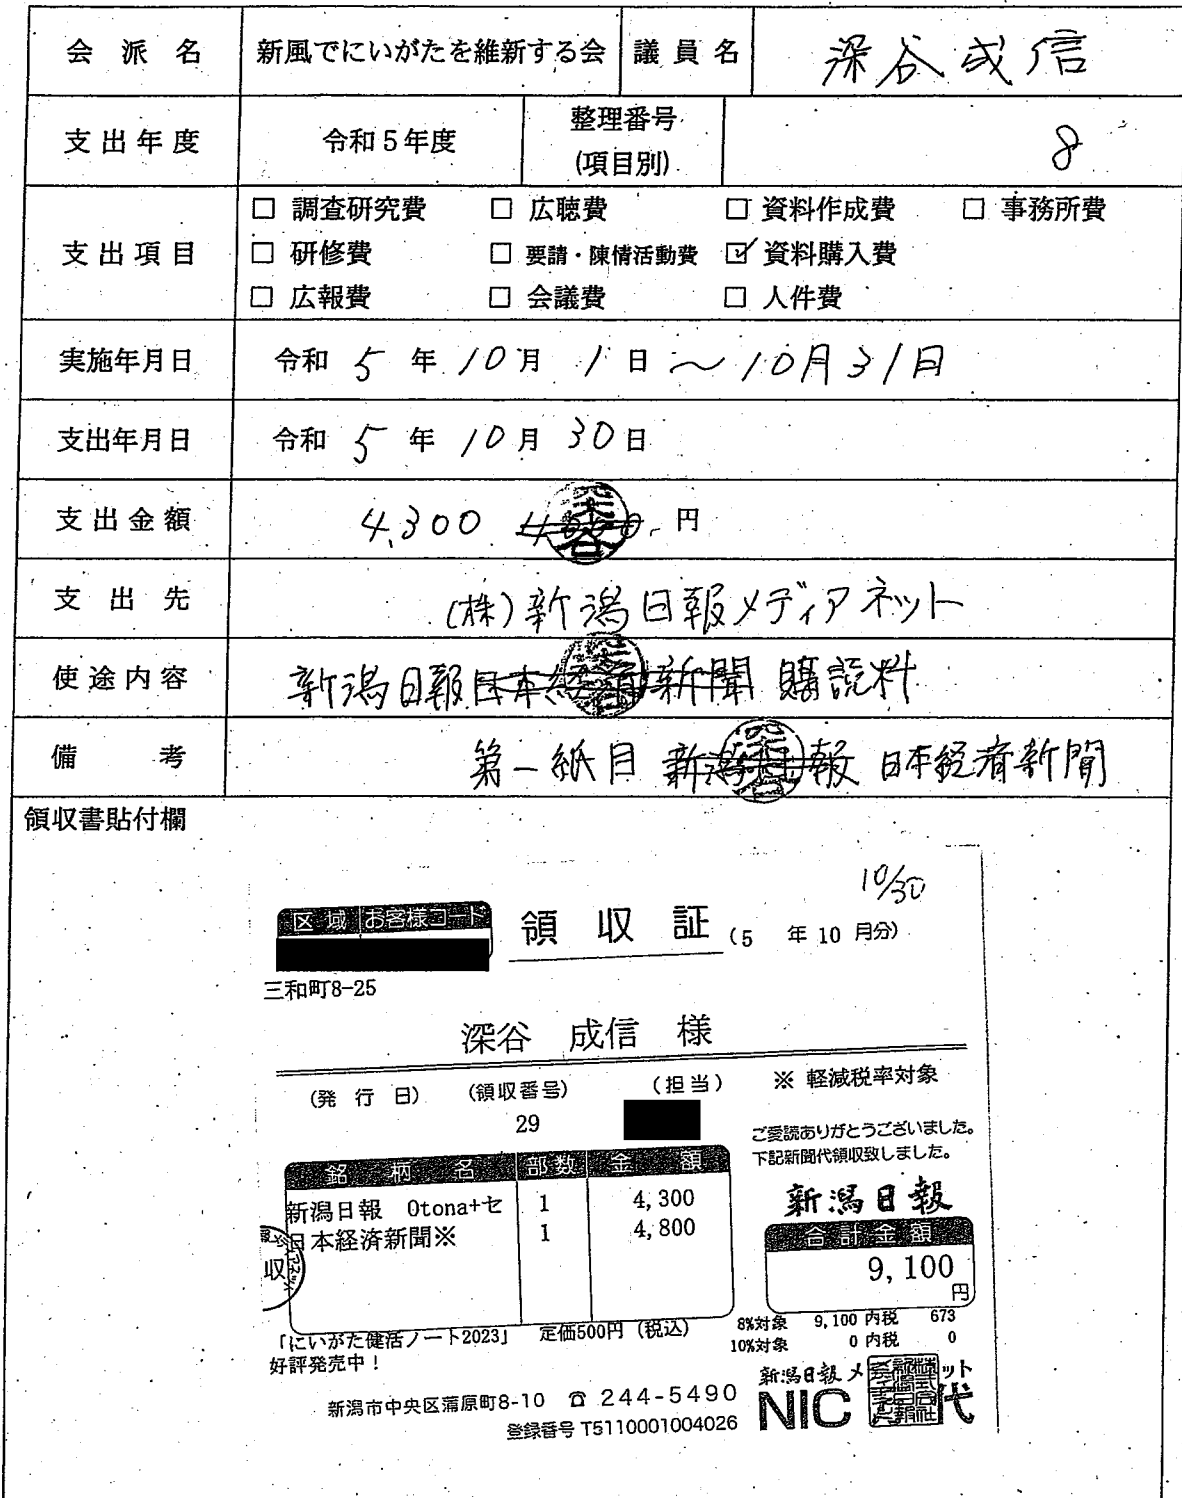 会派名 新風でにいがたを維新する会 議員名 深谷成信
支出年度 令和5年度 整理番号(項目別) 8
支出項目
□ 調査研究費 □ 広聴費 □ 資料作成費 □ 事務所費
□ 研修費 □ 要請・陳情活動費 ☑ 資料購入費
□ 広報費 □ 会議費 □ 人件費
実施年月日 令和 5 年 10月 1 日 ~ 10月31日
支出年月日 令和 5 年 10月 30日
支出金額 4,300 円
支出先 (株)新潟日報メディアネット
使途内容 新潟日報日本経済新聞 購読料
備考 第一紙目 新潟日報 日本経済新聞
領収書貼付欄
10/30
区域 お客様コード 領収証 (5 年 10 月分)
三和町8-25
深谷 成信 様
(発行日) (領収番号) (担当) ※ 軽減税率対象
29
ご愛読ありがとうございました。
下記新聞代領収致しました。
銘柄名 部数 金額
新潟日報 Otona+セ 1 4,300
日本経済新聞※ 1 4,800
新潟日報
合計金額
9,100
円
8%対象 9,100 内税 673
10%対象 0 内税 0
「にいがた健活ノート2023」 定価500円(税込)
好評発売中!
新潟市中央区蒲原町8-10 ☎ 244-5490
登録番号 T5110001004026
新潟日報メ ット
NIC 代